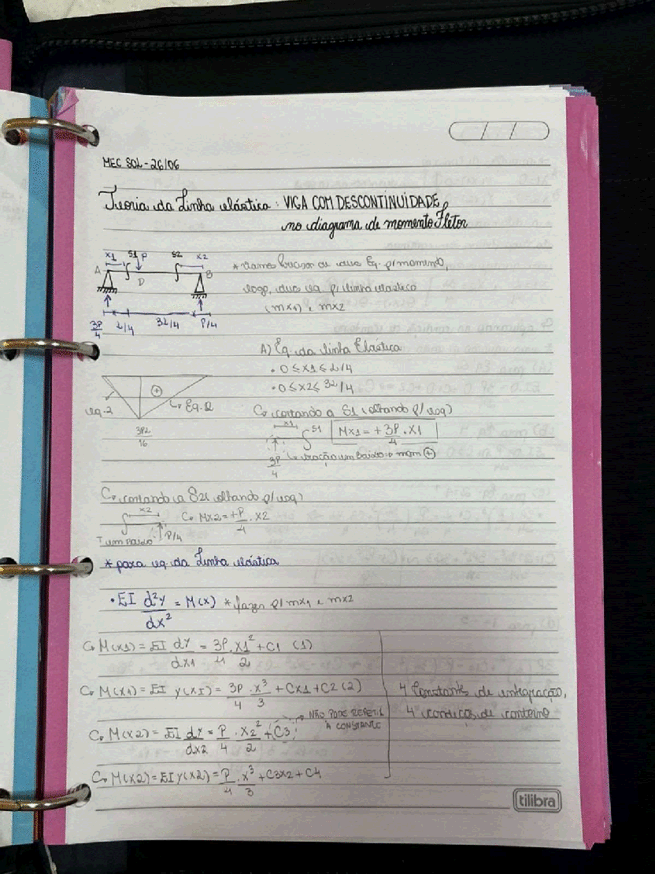 MEC SOL - 26/06
Teoria da Linha elástica: VIGA COM DESCONTINUIDADE
no diagrama de momento Fletor
x1 S1 P S2 x2
A D B
3P/4 L/4 3L/4 P/4
* vamos buscar as duas Eq. p/ momento,
logo, duas eq p/ linha elástica
(mx1) e mx2
A) Eq. da linha Elástica
• 0 ≤ x1 ≤ L/4
• 0 ≤ x2 ≤ 3L/4
eq. 1 + Eq. 2
3PL/16
Cortando a S1 (olhando p/ esq)
x1 S1 Mx1 = + 3P/4 . x1
3P/4
Cortando a S2 (olhando p/ esq)
x2 Mx2 = + P/4 . x2
P/4
* para eq. da Linha elástica
• EI d²y/dx² = M(x) * fazer p/ mx1 e mx2
M(x1) = EI dy/dx1 = 3P/4 . x1²/2 + C1 (1)
M(x1) = EI y(x1) = 3P/4 . x³/3 + Cx1 + C2 (2)
M(x2) = EI dy/dx2 = P/4 . x2²/2 + C3 NÃO PODE REPETIR A CONSTANTE
M(x2) = EI y(x2) = P/4 . x³/3 + C3x2 + C4
4 Constants de integração,
4 condições de contorno
tilibra